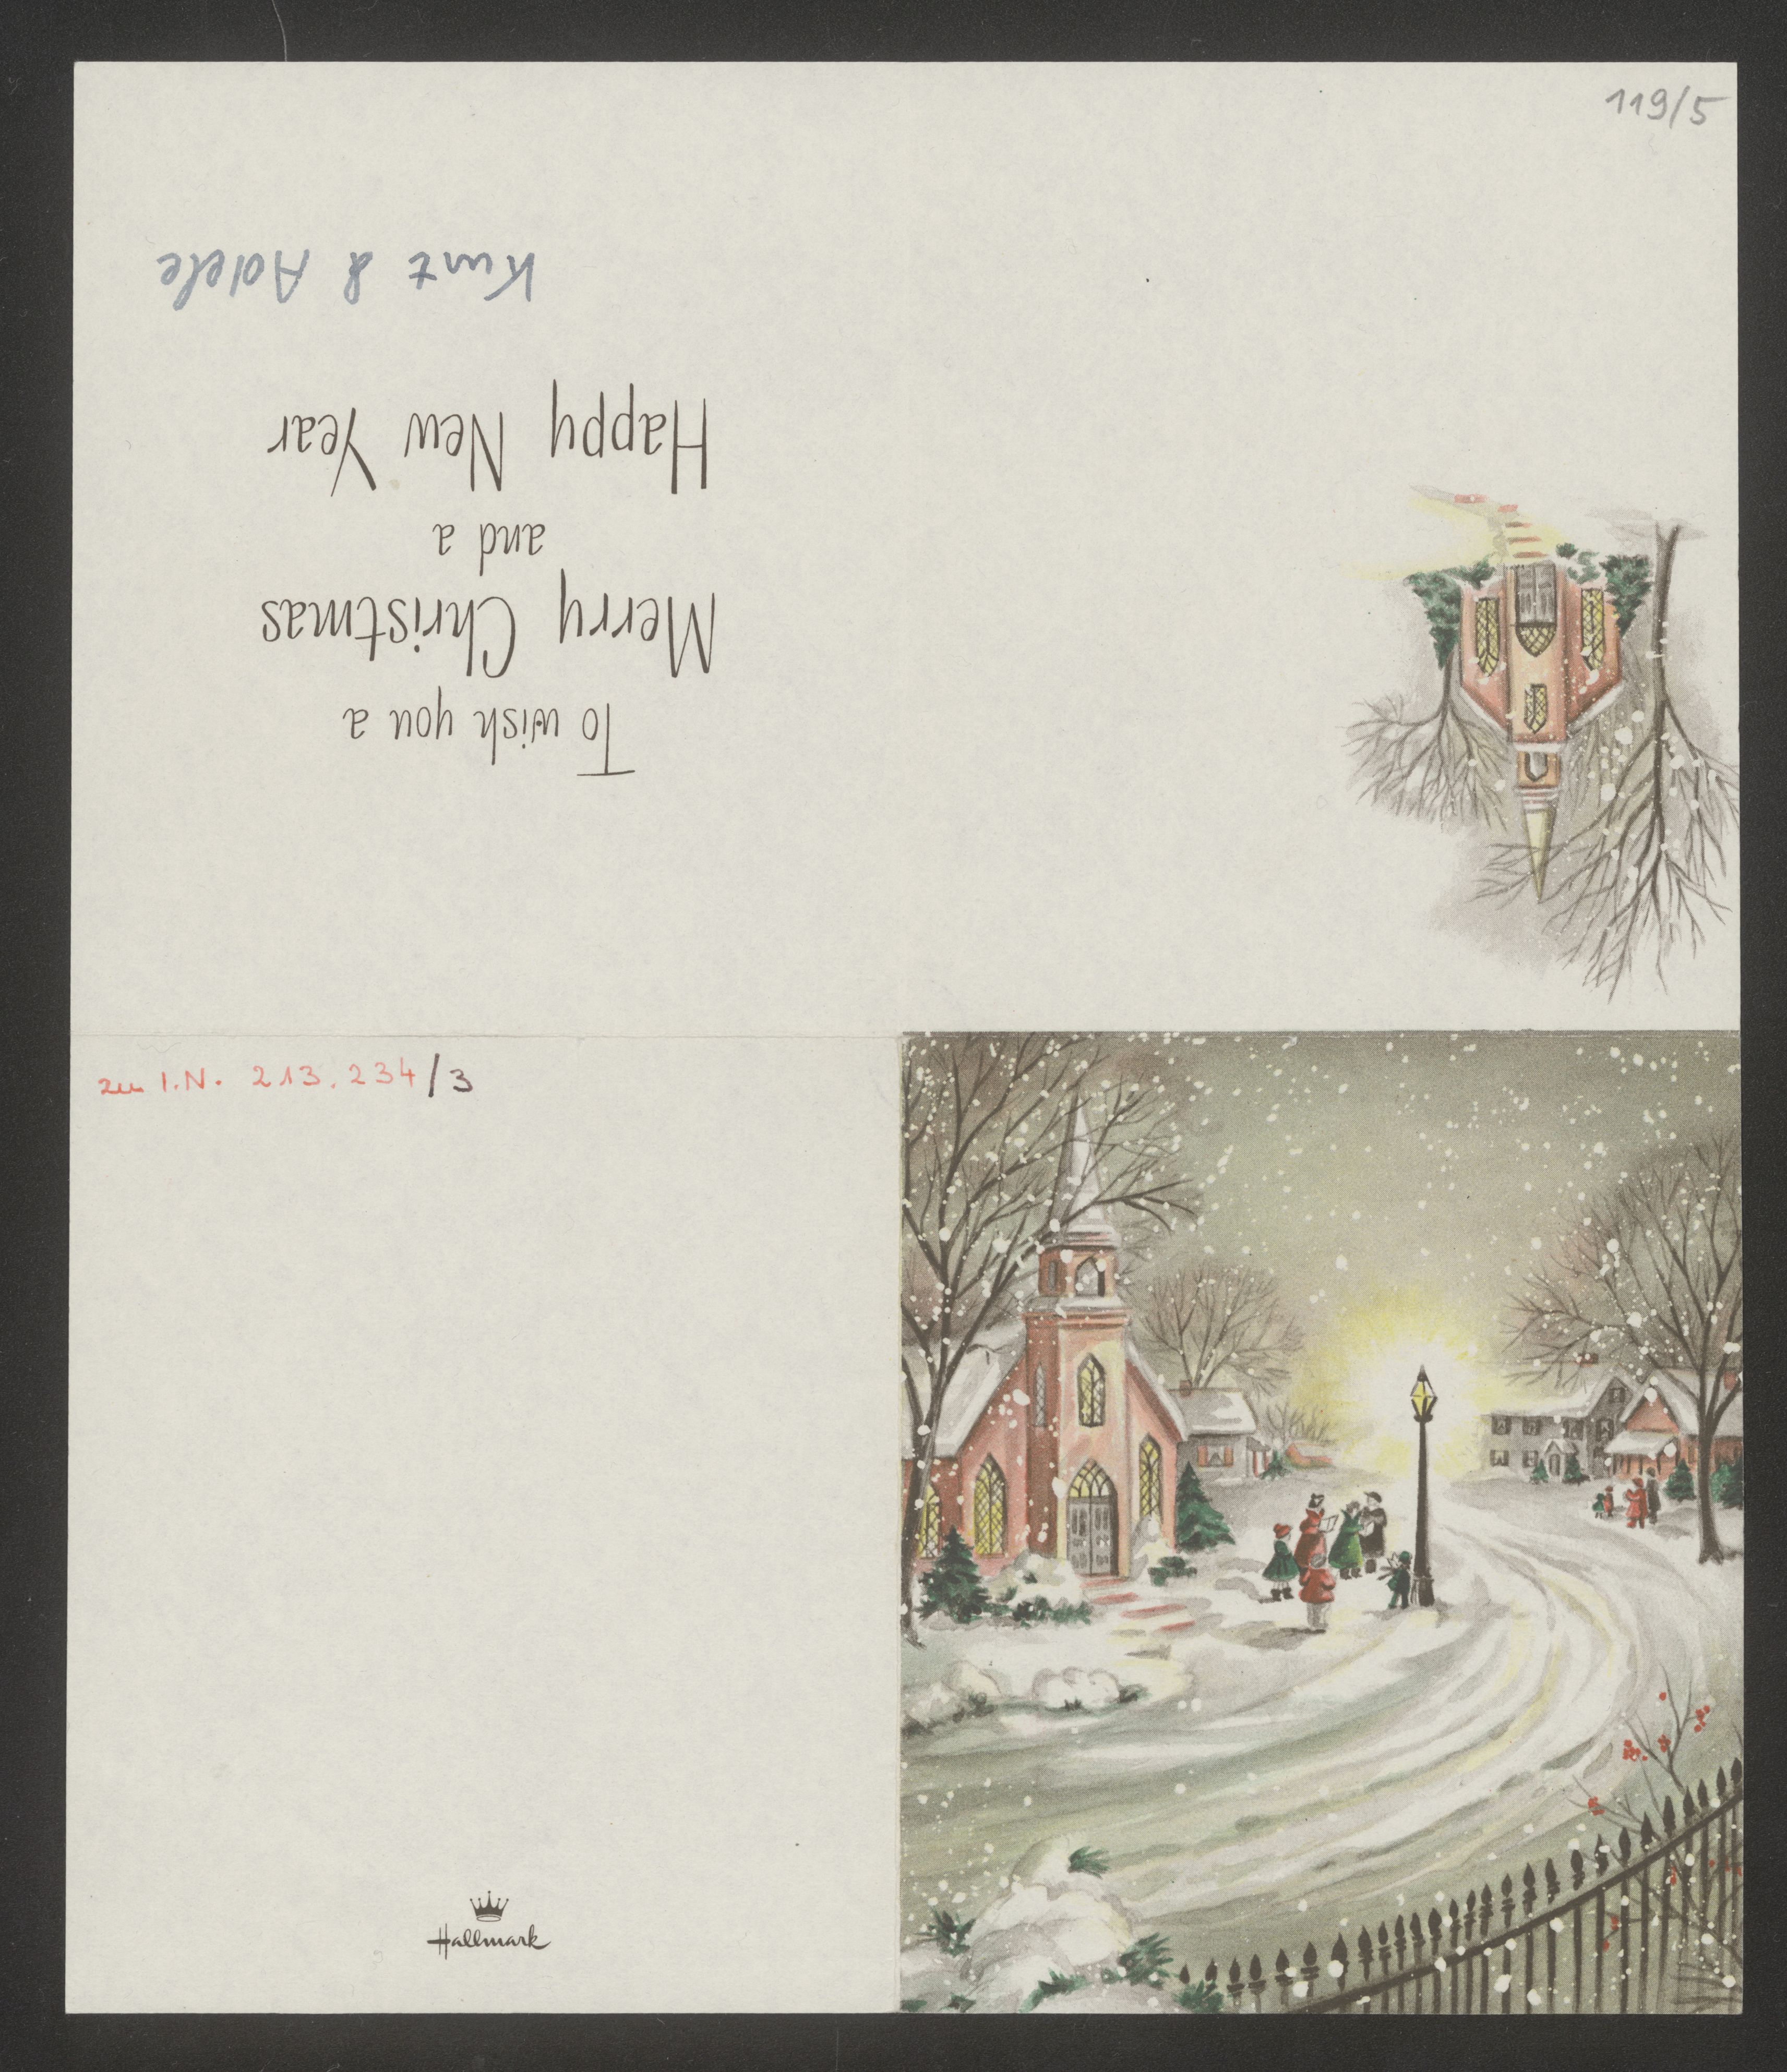 119/5
To wish you a
Merry Christmas
and a
Happy New Year
Kurt & Adele
zu I.N. 213.234/3
Hallmark